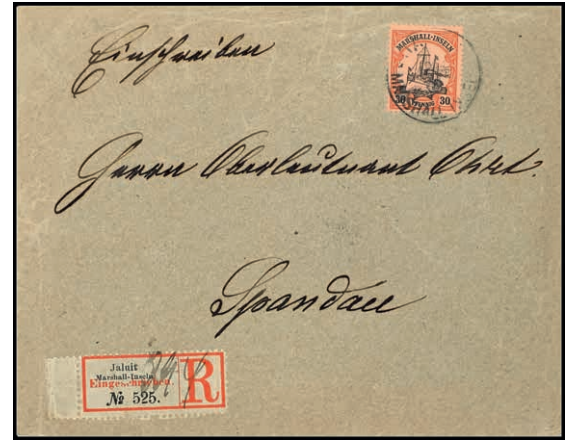 Einschreiben
MARSHALL-INSELN
30 30
MARSHALL
Herrn Oberleutnant Ohrt.
Spandau
Jaluit
Marshall-Inseln
Eingeschrieben.
№ 525.
R